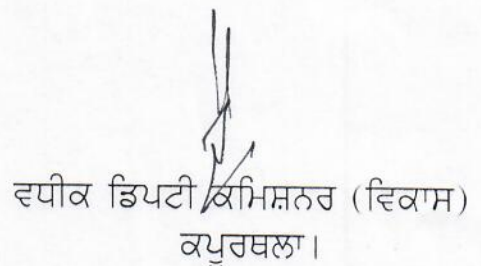 ਵਧੀਕ ਡਿਪਟੀ ਕਮਿਸ਼ਨਰ (ਵਿਕਾਸ)
ਕਪੂਰਥਲਾ।